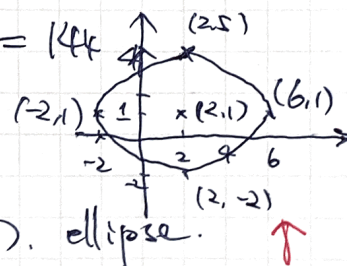 = 144
(2,5)
4
(-2,1) 1 (2,1) (6,1)
-2 2 4 6
-2
(2,-2)
). ellipse.